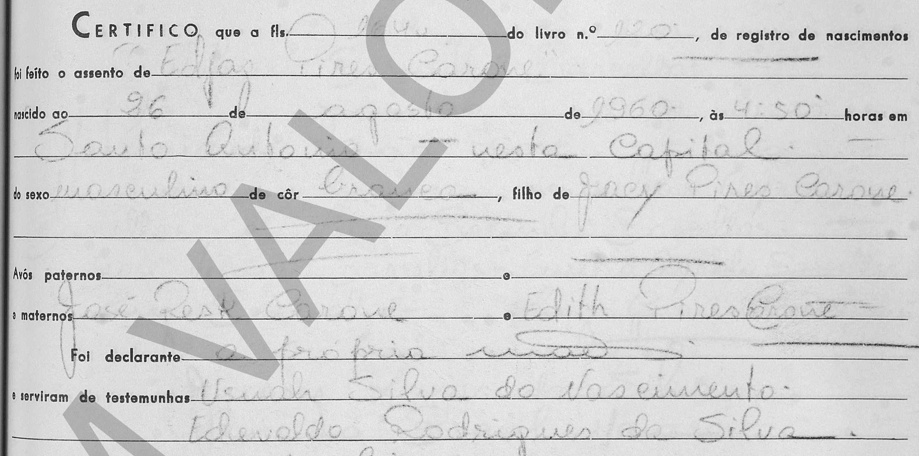 CERTIFICO que a fls. do livro n.º 120, de registro de nascimentos
foi feito o assento de "Edjaz Pires Carone"
nascido ao 26 de agosto de 1960, às 4:50 horas em
Santo Antonio - nesta Capital.
do sexo masculino de côr branca, filho de Jacy Pires Carone.
Avós paternos e
e maternos José Resk Carone e Edith Pires Carone
Foi declarante a própria mãe
e serviram de testemunhas Silva do Nascimento.
Edevaldo Rodrigues da Silva.
VALO